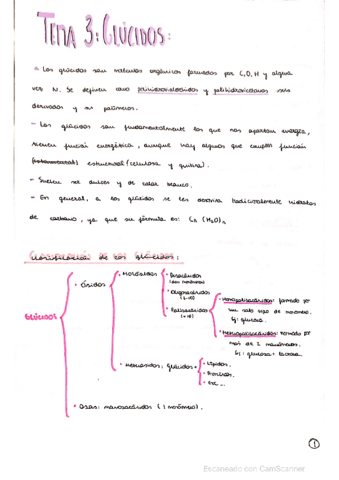 TEMA 3: GLÚCIDOS:
- Los glúcidos son moléculas orgánicas formadas por C, O, H y alguna
vez N. Se definen como polihidroxialdehídos y polihidroxicetonas, sus
derivados y sus polímeros.
- Los glúcidos son fundamentalmente los que nos aportan energía,
tienen función energética, aunque hay algunos que cumplen función
estructural (celulosa y quitina).
- Suelen ser dulces y de color blanco.
- En general, a los glúcidos se les denomina tradicionalmente hidratos
de carbono, ya que su fórmula es: Cn (H2O)n
Clasificación de los glúcidos:
GLÚCIDOS
· Ósidos
· Holósidos
· Disacáridos
(dos monómeros)
· Oligosacáridos
(2-10)
· Polisacáridos
(>10)
· Homopolisacáridos: formado por
un solo tipo de monómero.
Ej: glucosa.
· Heteropolisacáridos: formado por
más de 2 monómeros.
Ej: glucosa + lactosa.
· Heterósidos: Glúcidos +
· Lípidos.
· Proteínas.
· etc...
· Osas: monosacáridos (1 monómero).
1
Escaneado con CamScanner